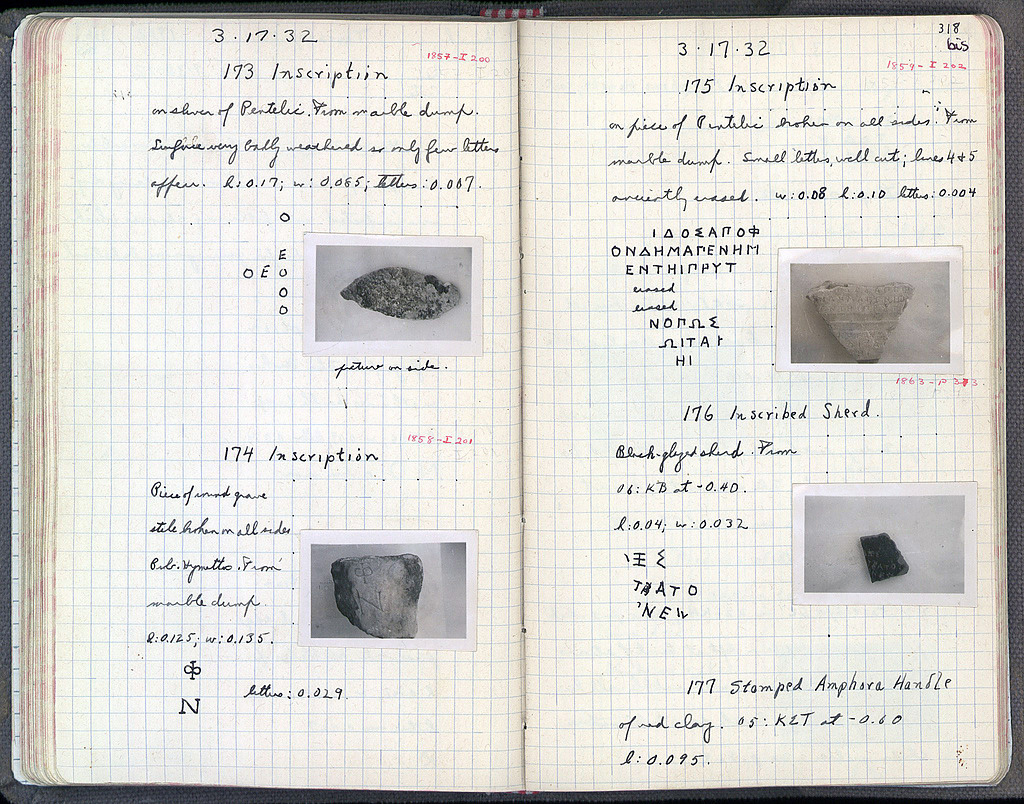 3·17·32
1857-I 200
173 Inscription
on sliver of Pentelic. From marble dump.
Surface very badly weathered so only few letters
appear. l:0.17; w:0.065; letters:0.007.
Ο
Ε
Ο Ε Ο
Ο
Ο
picture on side.
1858-I 201
174 Inscription
Piece of round grave
stele broken on all sides
Prb. Hymettos. From
marble dump.
l:0.125; w:0.135.
Φ
Ν
letters: 0.029.
318
bis
3·17·32
1859-I 202
175 Inscription
on piece of Pentelic broken on all sides. From
marble dump. Small letters, well cut; lines 4+5
anciently erased. w:0.08 l:0.10 letters:0.004
ΙΔΟΣΑΠΟΦ
ΟΝΔΗΜΑΓΕΝΗΜ
ΕΝΤΗΙΠΡΥΤ
erased
erased
ΝΟΠΩΣ
ΩΙΤΑΙ
ΗΙ
1863-P
176 Inscribed Sherd.
Black-glazed sherd. From
06: KB at -0.40.
l:0.04; w:0.032
ΑΤΟ
ΝΕ
177 Stamped Amphora Handle
of red clay. 05: ΚΣΤ at -0.60
l:0.095.